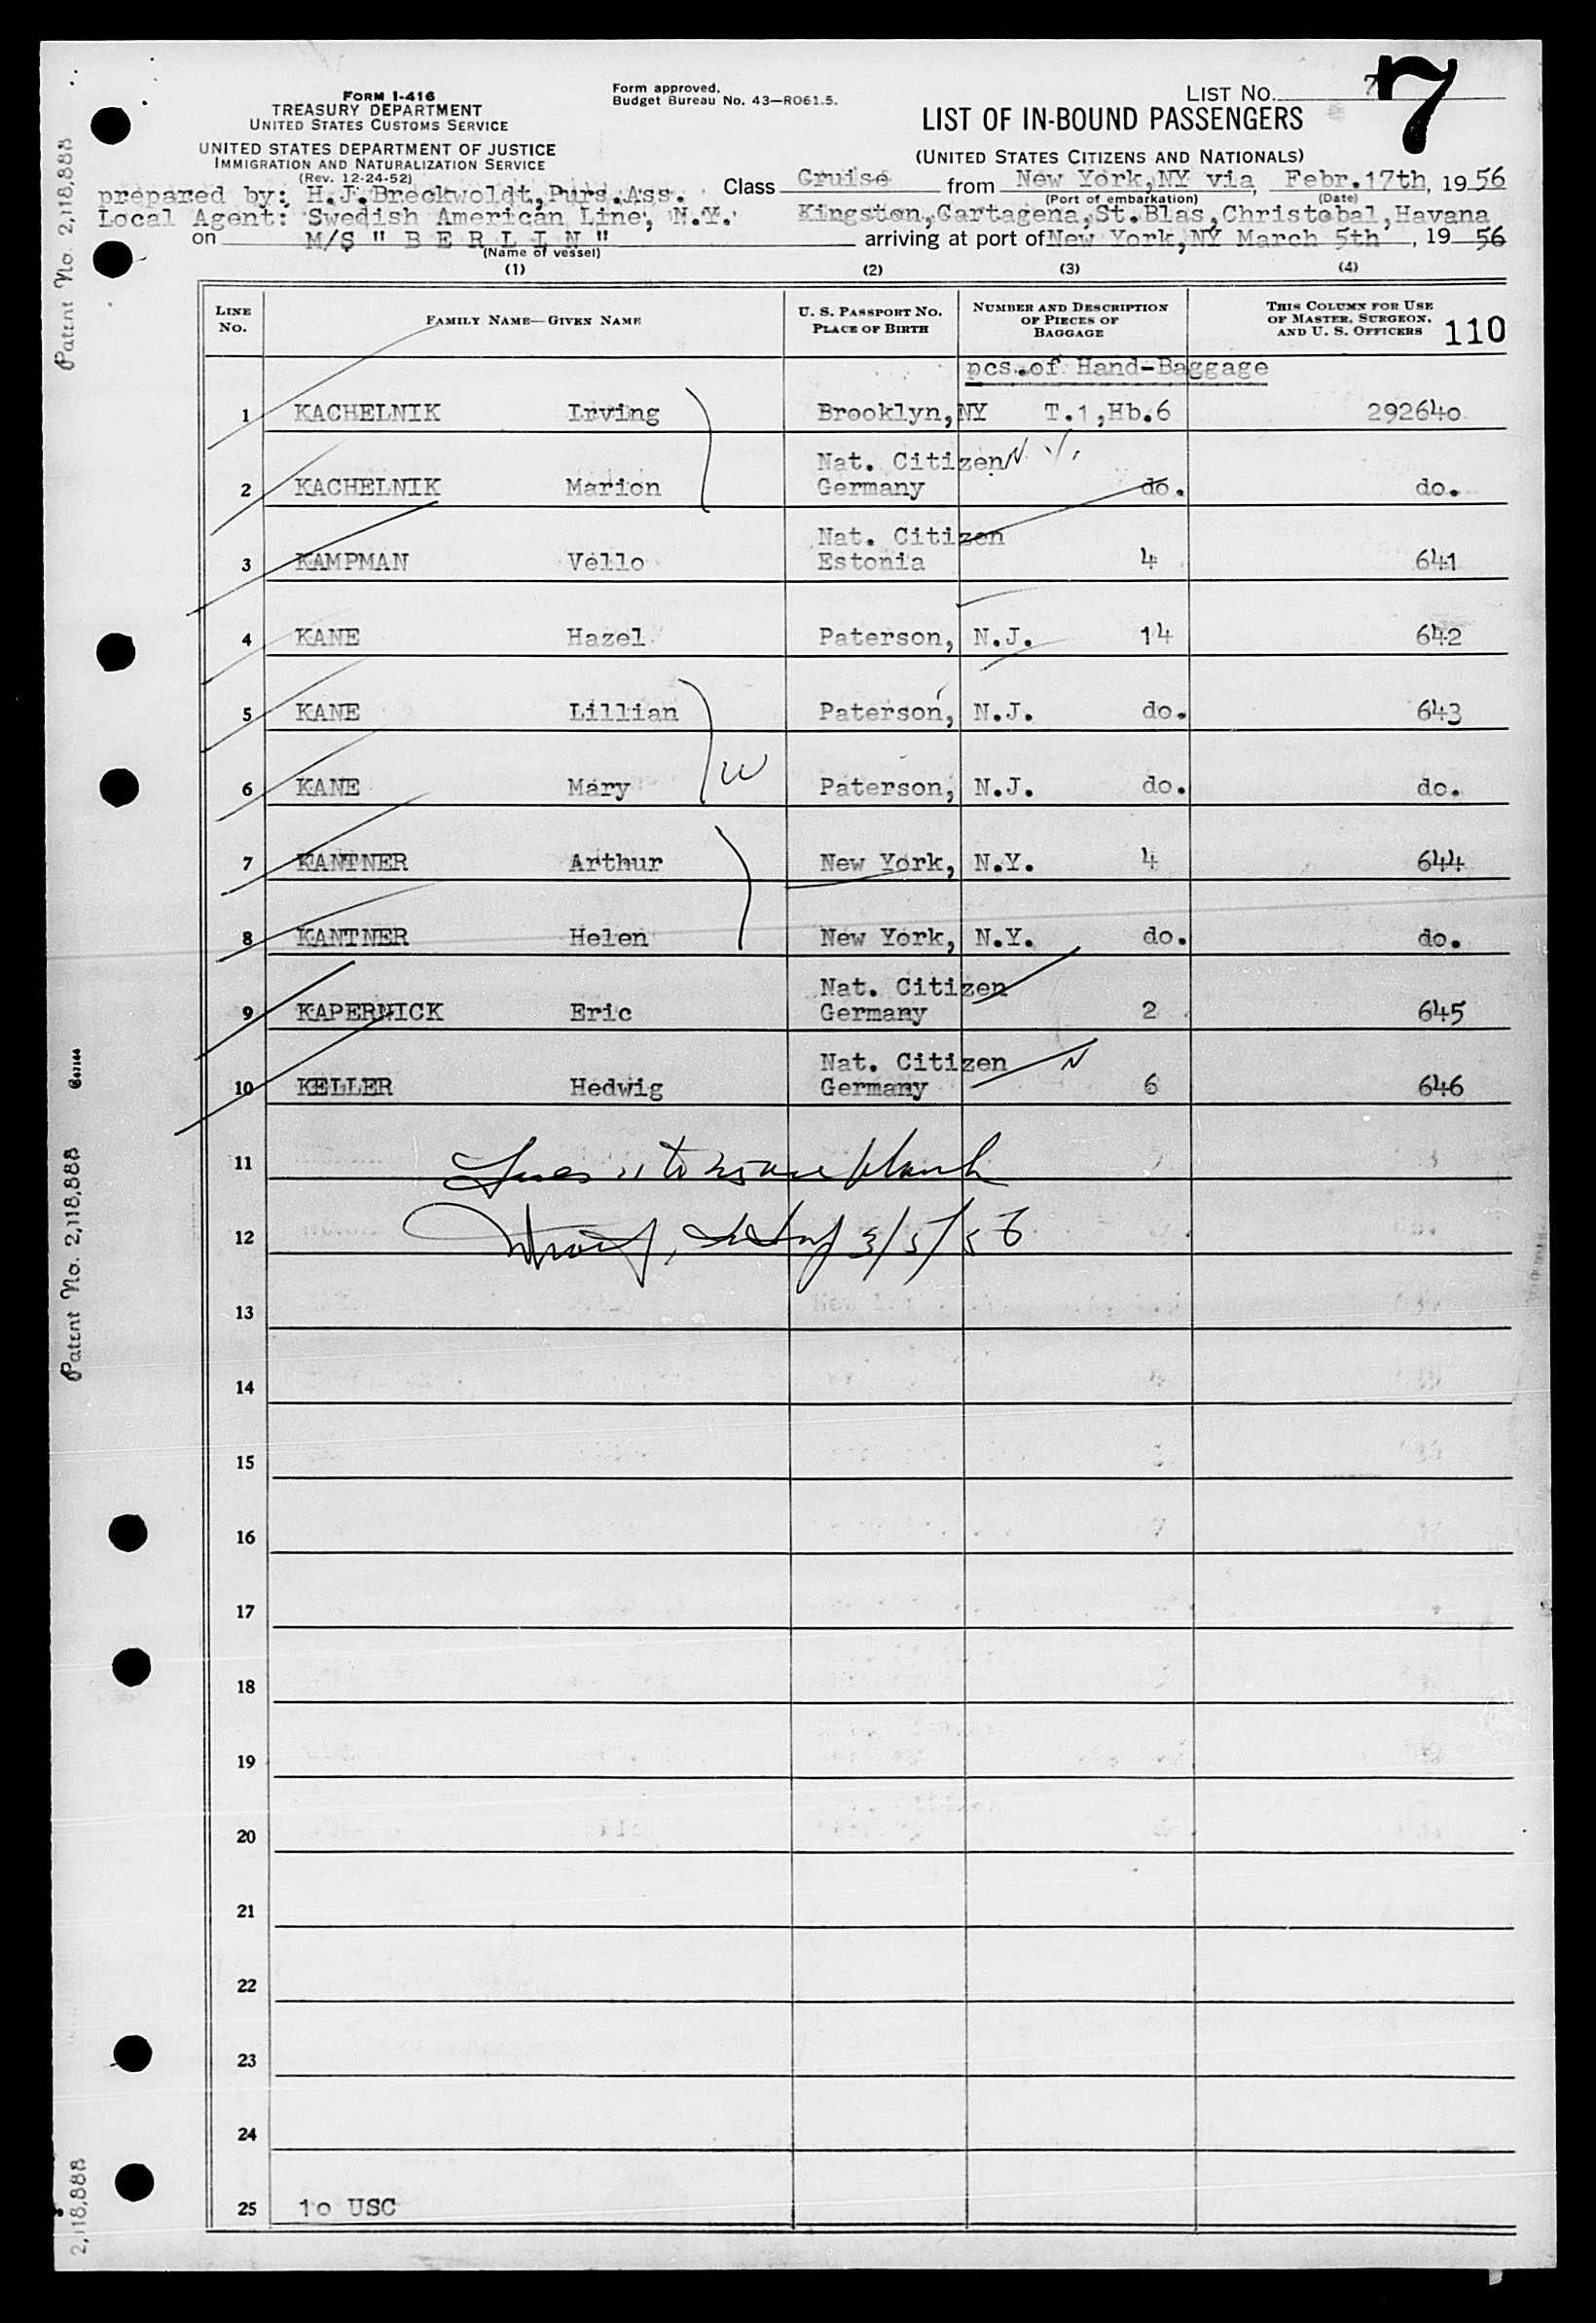 Form I-416
TREASURY DEPARTMENT
UNITED STATES CUSTOMS SERVICE
UNITED STATES DEPARTMENT OF JUSTICE
IMMIGRATION AND NATURALIZATION SERVICE
(Rev. 12-24-52)
Form approved.
Budget Bureau No. 43—RO61.5.
LIST No. 7
7
LIST OF IN-BOUND PASSENGERS
(UNITED STATES CITIZENS AND NATIONALS)
prepared by: H.J.Breckwoldt,Purs.Ass. Class Cruise from New York,NY via, Febr.17th, 1956
(Port of embarkation) (Date)
Local Agent: Swedish American Line, N.Y. Kingston,Cartagena,St.Blas,Christobal,Havana
on M/S " B E R L I N " arriving at port of New York,NY March 5th, 1956
(Name of vessel)
(1) (2) (3) (4)
LINE No. FAMILY NAME—GIVEN NAME U. S. PASSPORT NO. PLACE OF BIRTH NUMBER AND DESCRIPTION OF PIECES OF BAGGAGE THIS COLUMN FOR USE OF MASTER, SURGEON, AND U. S. OFFICERS 110
pcs.of Hand-Baggage
1 KACHELNIK Irving Brooklyn,NY T.1,Hb.6 292640
Nat. Citizen N
2 KACHELNIK Marion Germany do. do.
Nat. Citizen
3 KAMPMAN Vello Estonia 4 641
4 KANE Hazel Paterson, N.J. 14 642
5 KANE Lillian Paterson, N.J. do. 643
6 KANE Mary W Paterson, N.J. do. do.
7 KANTNER Arthur New York, N.Y. 4 644
8 KANTNER Helen New York, N.Y. do. do.
Nat. Citizen
9 KAPERNICK Eric Germany 2 645
Nat. Citizen N
10 KELLER Hedwig Germany 6 646
11 Lines 11 to 25 are blank
12 3/5/56
13
14
15
16
17
18
19
20
21
22
23
24
25 10 USC
Patent No. 2,118,888
Patent No. 2,118,888
2,118,888